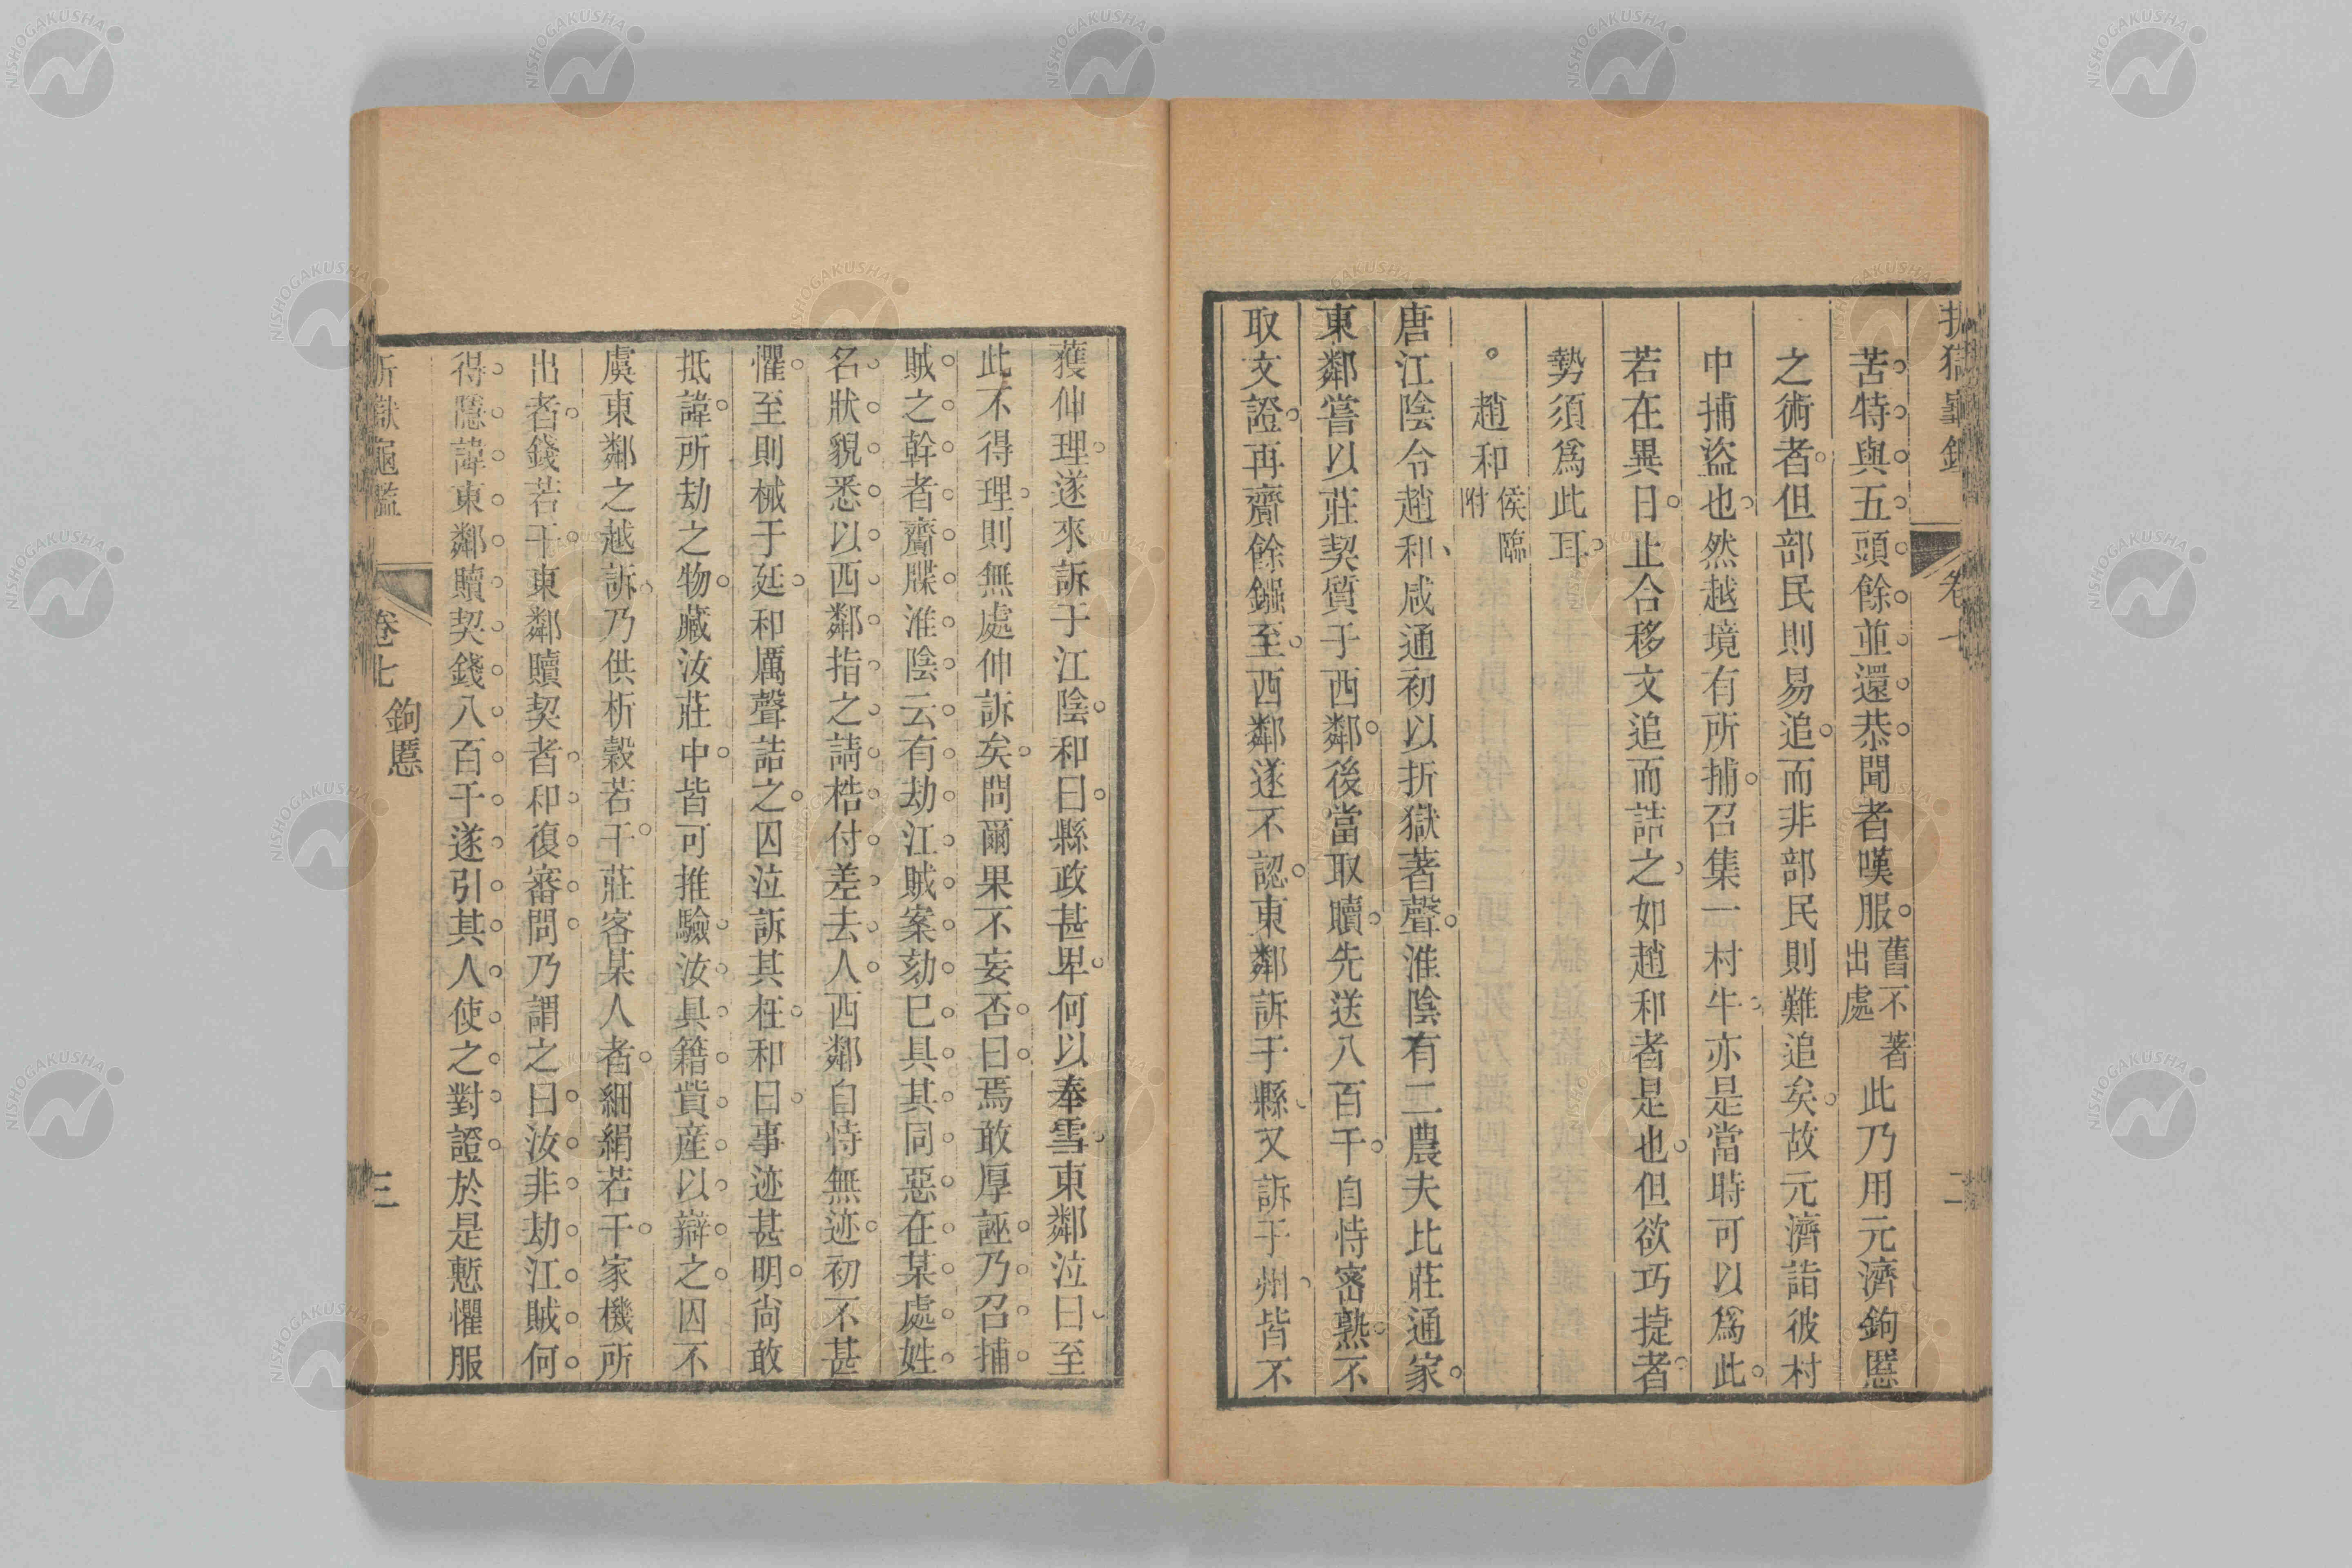 折獄龜鑑
卷七
二
苦特與五頭餘並還恭聞者嘆服舊不著出處此乃用元濟鉤慝
之術者但部民則易追而非部民則難追矣故元濟詣彼村
中捕盜也然越境有所捕召集一村牛亦是當時可以爲此
若在異日止合移文追而詰之如趙和者是也但欲巧捷者
勢須爲此耳
。趙和侯臨附
唐江陰令趙和咸通初以折獄著聲淮陰有二農夫比莊通家
東鄰嘗以莊契質于西鄰後當取贖先送八百千自恃密熟不
取文證再齎餘鏹至西鄰遂不認東鄰訴于縣又訴于州皆不
獲伸理遂來訴于江陰和曰縣政甚卑何以奉雪東鄰泣曰至
此不得理則無處伸訴矣問爾果不妄否曰焉敢厚誣乃召捕
賊之幹者齎牒淮陰云有劫江賊案劾已具其同惡在某處姓
名狀貌悉以西鄰指之請梏付差去人西鄰自恃無迹初不甚
懼至則械于廷和厲聲詰之囚泣訴其枉和曰事迹甚明尙敢
抵諱所劫之物藏汝莊中皆可推驗汝具籍貲産以辯之囚不
虞東鄰之越訴乃供析穀若干莊客某人者細絹若干家機所
出者錢若干東鄰贖契者和復審問乃謂之曰汝非劫江賊何
得隱諱東鄰贖契錢八百千遂引其人使之對證於是慙懼服
折獄龜鑑
卷七
鉤慝
三